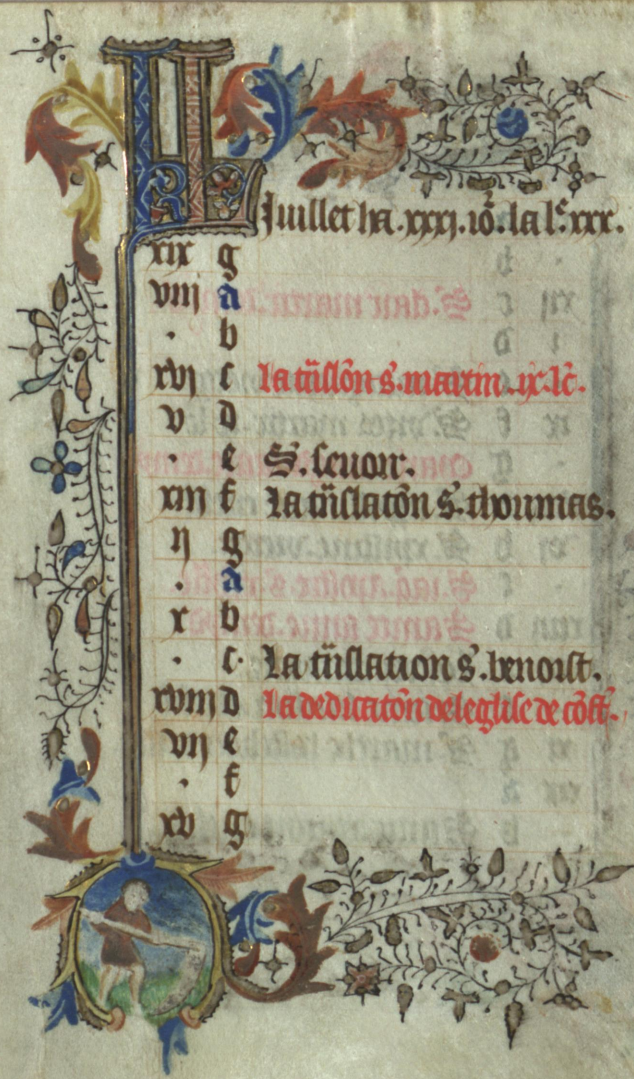 KL
Juillet ha .xxxj. io᷎. la lᵉ. xxx.
xix g
viij a
. b
xvj c la tũslõn s. martin .ix. lc̃.
v d
. e S. leuour.
xiij f la tũslatõn s. thoumas.
ij g
. a
x b
. c. la tũslation s. benoist.
xviij d la dedicatõn deleglise de cõst.
vij e
. f
xv g